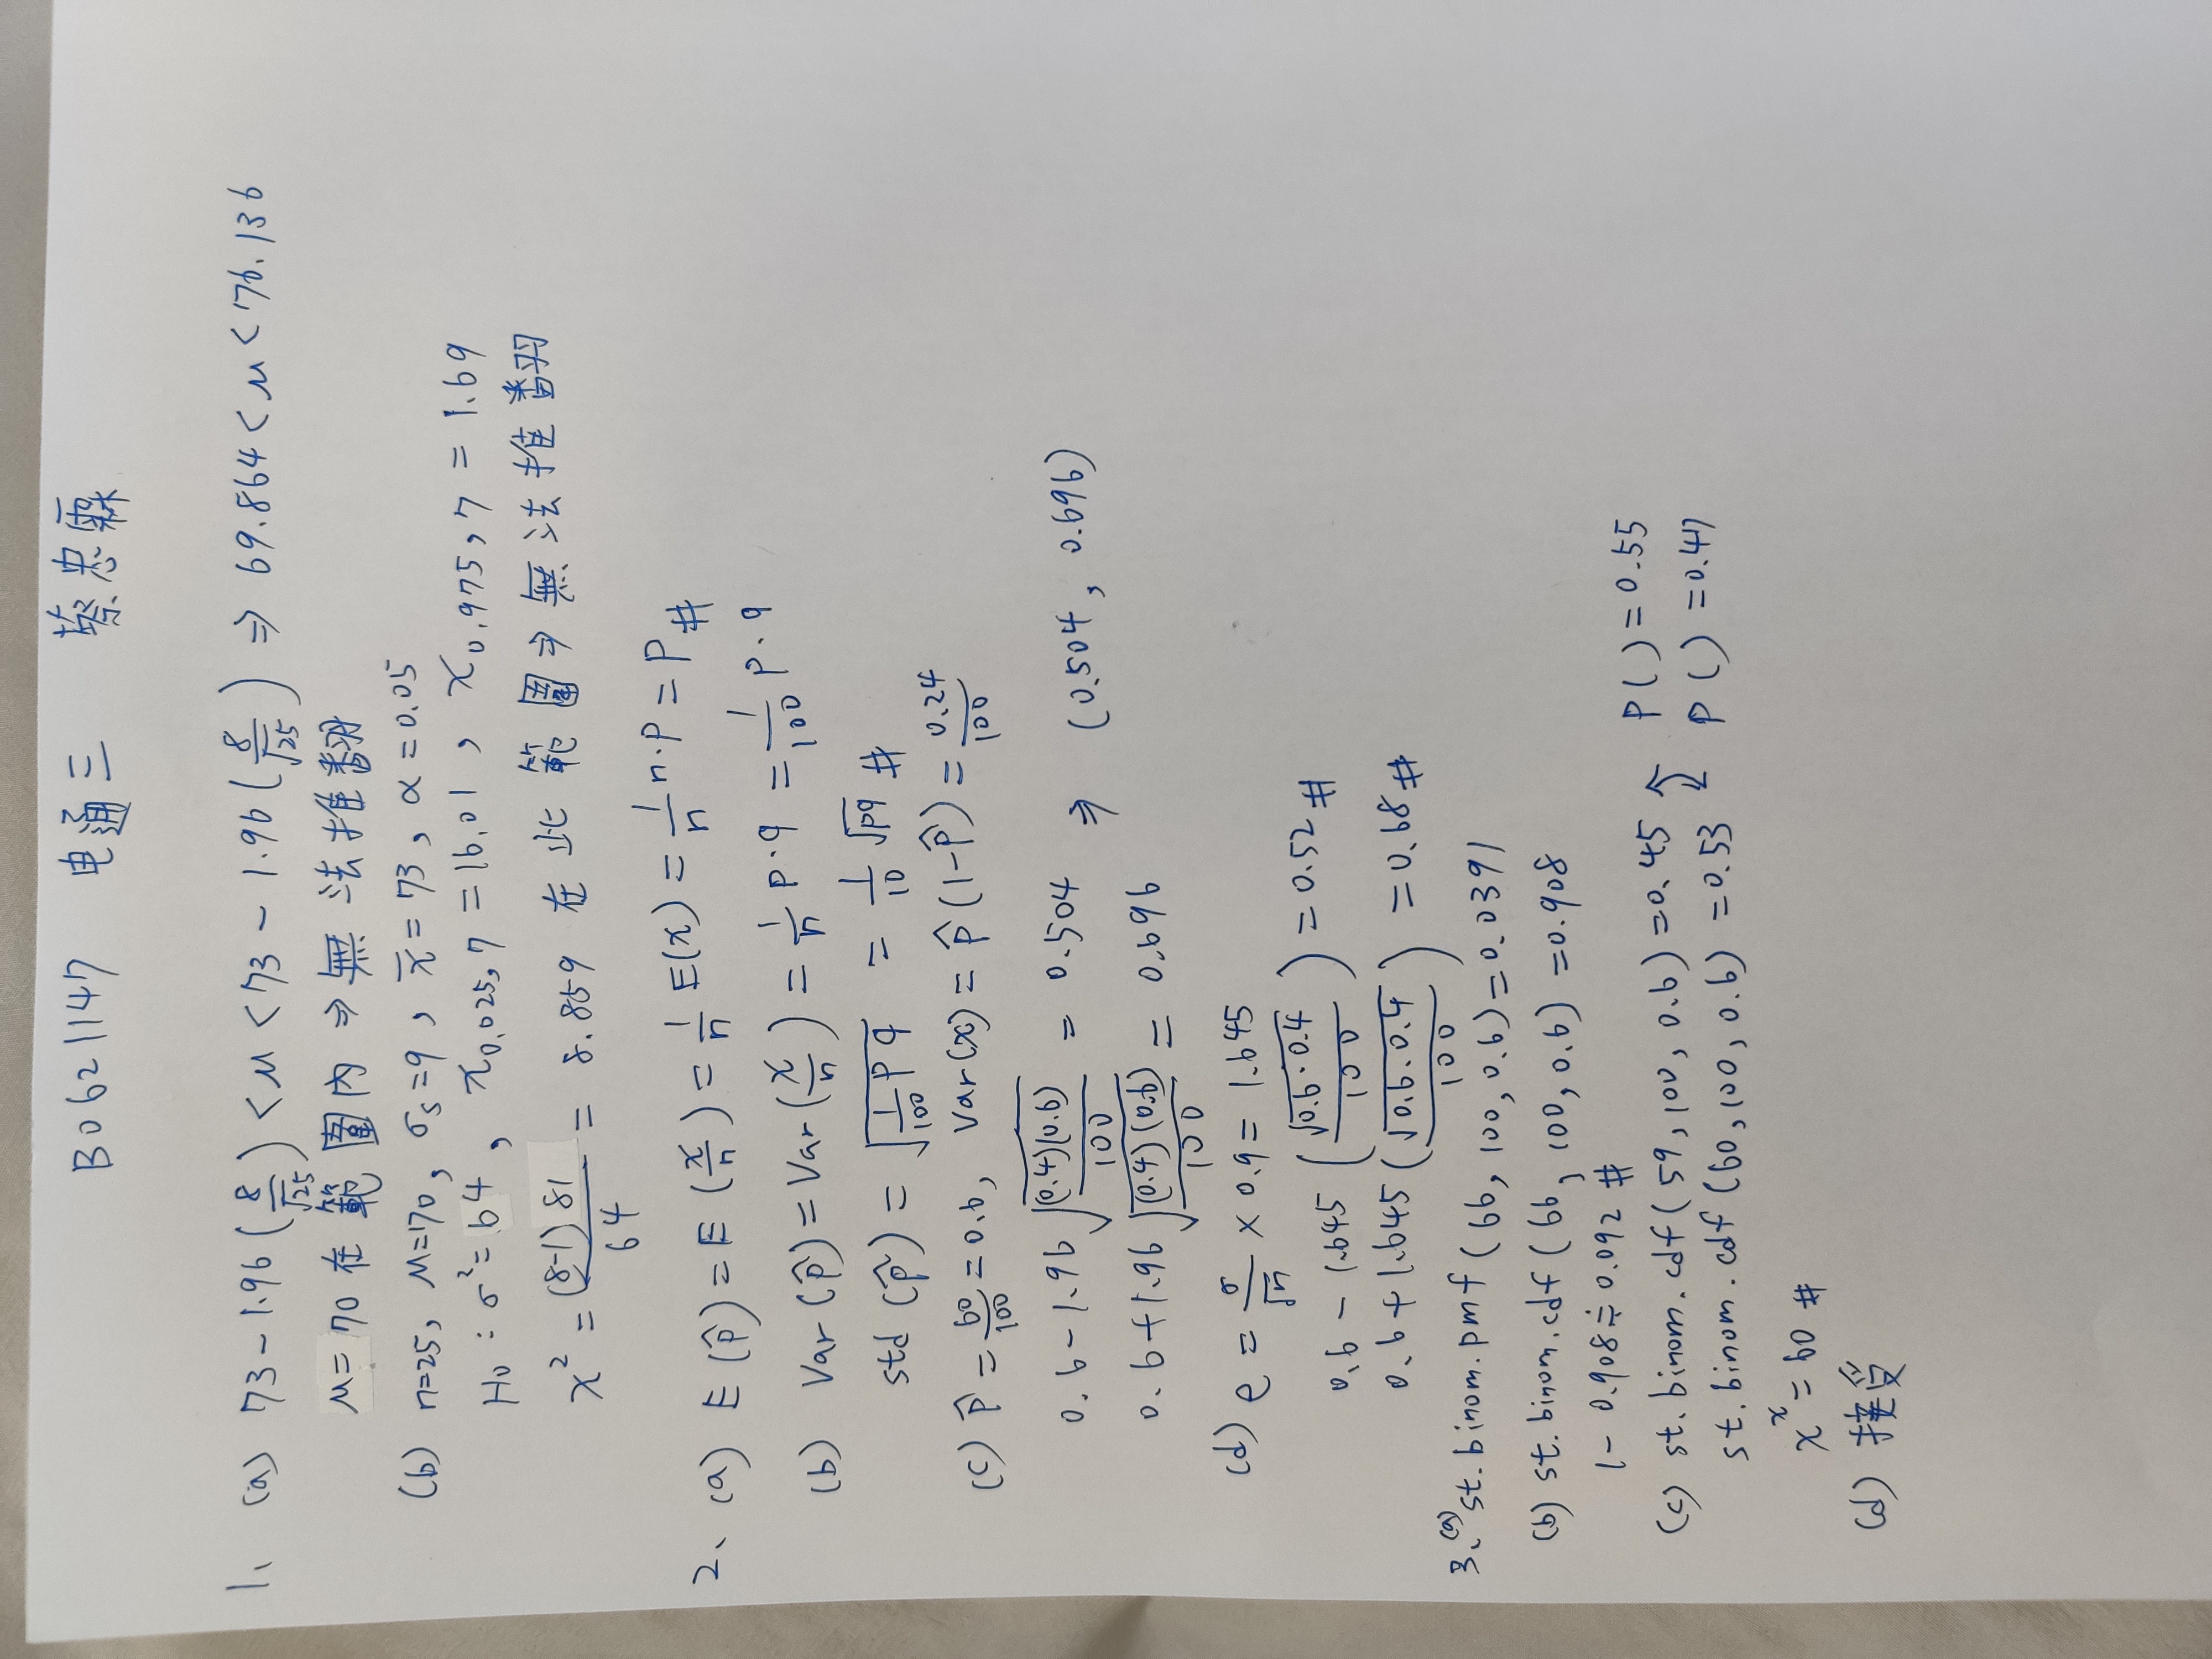 B0621147 电通三 蔡忠霖
1、 (a) 73-1.96(8/√25)<μ<73-1.96(8/√25) ⇒ 69.864<μ<76.136
μ=70在範圍內⇒無法推翻
(b) n=25, μ=70, σs=9, x̄=73, α=0.05
H0:σ²=64, x0.025,7=16.01, x0.975,7=1.69
x²=(8-1)81/64=8.859 在此範圍⇒無法推翻
2、 (a) E(p̂)=E(x/n)=1/n E(x)=1/n n·p=P#
(b) Var(p̂)=Var(x/n)=1/n p·q=1/100 p·q
std(p̂)=√(1/100 pq)=1/10 √pq #
(c) p̂=60/100=0.6, Var(x)=p̂(1-p̂)=0.24/100
0.6-1.96√((0.4)(0.6)/100)=0.504 ⇒ (0.504, 0.696)
0.6+1.96√((0.4)(0.6)/100)=0.696
(d) e=σ/√n×0.9=1.645
0.6-1.645(√0.6·0.4/100)=0.52#
0.6+1.645(√0.6·0.4/100)=0.68#
3、(a) st.binom.pmf(66,100,0.6)=0.0391
(b) st.binom.cdf(66,100,0.6)=0.908
1-0.908≑0.092 #
(c) st.binom.cdf(59,100,0.6)=0.45 P( )=0.55
st.binom.cdf(60,100,0.6)=0.53 P( )=0.47
x^x=60 #
(d) 接受